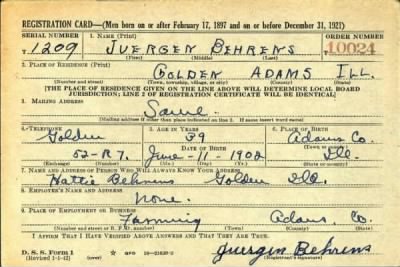 REGISTRATION CARD—(Men born on or after February 17, 1897 and on or before December 31, 1921)
SERIAL NUMBER 1. NAME (Print) ORDER NUMBER
T 1209 JUERGEN BEHRENS 10024
(First) (Middle) (Last)
2. PLACE OF RESIDENCE (Print)
GOLDEN ADAMS ILL.
(Number and street) (Town, township, village, or city) (County) (State)
[THE PLACE OF RESIDENCE GIVEN ON THE LINE ABOVE WILL DETERMINE LOCAL BOARD
JURISDICTION; LINE 2 OF REGISTRATION CERTIFICATE WILL BE IDENTICAL]
3. MAILING ADDRESS
Same
[Mailing address if other than place indicated on line 2. If same insert word same]
4. TELEPHONE 5. AGE IN YEARS 6. PLACE OF BIRTH
Golden 39 Adams Co.
DATE OF BIRTH (Town or county)
52-R7. June-11-1902 Ill.
(Exchange) (Number) (Mo.) (Day) (Yr.) (State or country)
7. NAME AND ADDRESS OF PERSON WHO WILL ALWAYS KNOW YOUR ADDRESS
Hattie Behrens Golden Ill.
8. EMPLOYER'S NAME AND ADDRESS
None.
9. PLACE OF EMPLOYMENT OR BUSINESS
Farming Adams, Co.
(Number and street or R. F. D. number) (Town) (County) (State)
I AFFIRM THAT I HAVE VERIFIED ABOVE ANSWERS AND THAT THEY ARE TRUE.
D. S. S. Form 1 Juergen Behrens
(Revised 1-1-42) (over) 16—21630-2 (Registrant's signature)